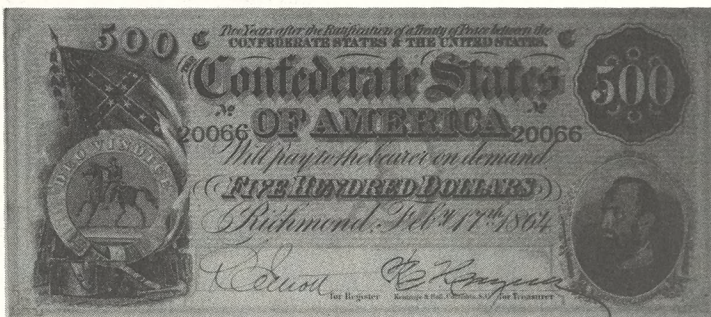 500 C Two Years after the Ratification of a Treaty of Peace between the C
CONFEDERATE STATES & THE UNITED STATES.
The Confederate States 500
Nº Nº
20066 OF AMERICA 20066
DEO VINDICE
Will pay to the bearer on demand
FIVE HUNDRED DOLLARS
Richmond, Feby 17th 1864
for Register Keatinge & Ball, Columbia, S.C. for Treasurer